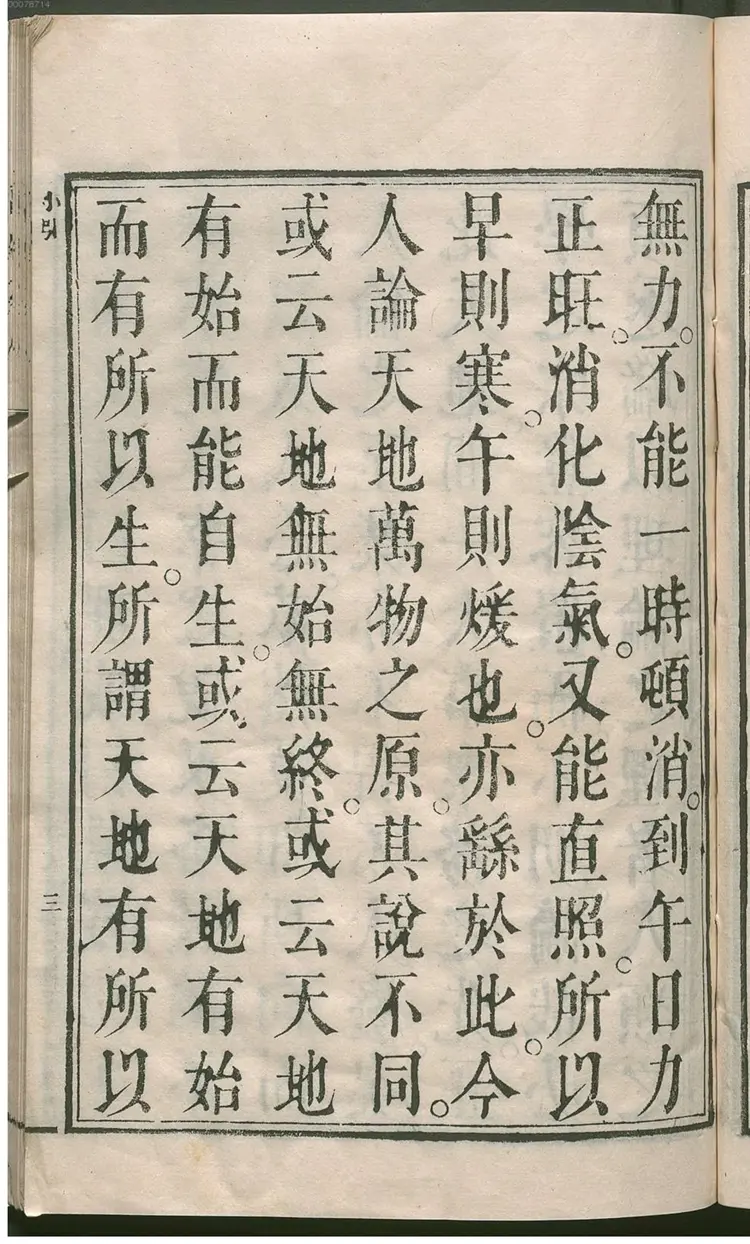 無力。不能一時頓消。到午日力
正旺。消化陰氣。又能直照。所以
早則寒。午則煖也。亦繇於此。今
人論天地萬物之原。其說不同。
或云天地無始無終。或云天地
有始而能自生。或云天地有始
而有所以生。所謂天地有所以
小引
三
00078714